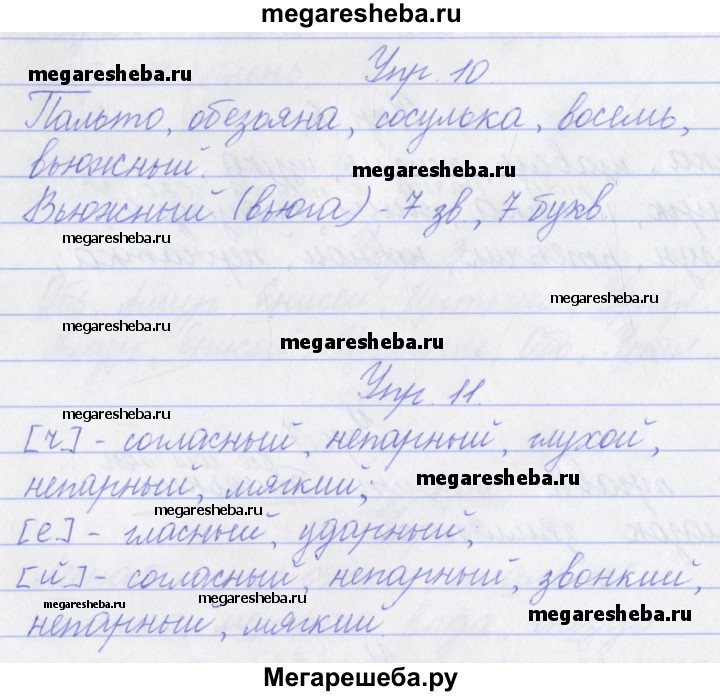 megaresheba.ru
megaresheba.ru
Упр. 10
Пальто, обезьяна, сосулька, восемь,
вьюжный.
megaresheba.ru
Вьюжный (вьюга) - 7 зв., 7 букв
megaresheba.ru
megaresheba.ru
megaresheba.ru
megaresheba.ru
Упр. 11.
megaresheba.ru
[ч] - согласный, непарный, глухой,
непарный, мягкий;
megaresheba.ru
megaresheba.ru
[е] - гласный, ударный;
[й] - согласный, непарный, звонкий,
megaresheba.ru
megaresheba.ru
непарный, мягкий.
megaresheba.ru
Мегарешеба.ру